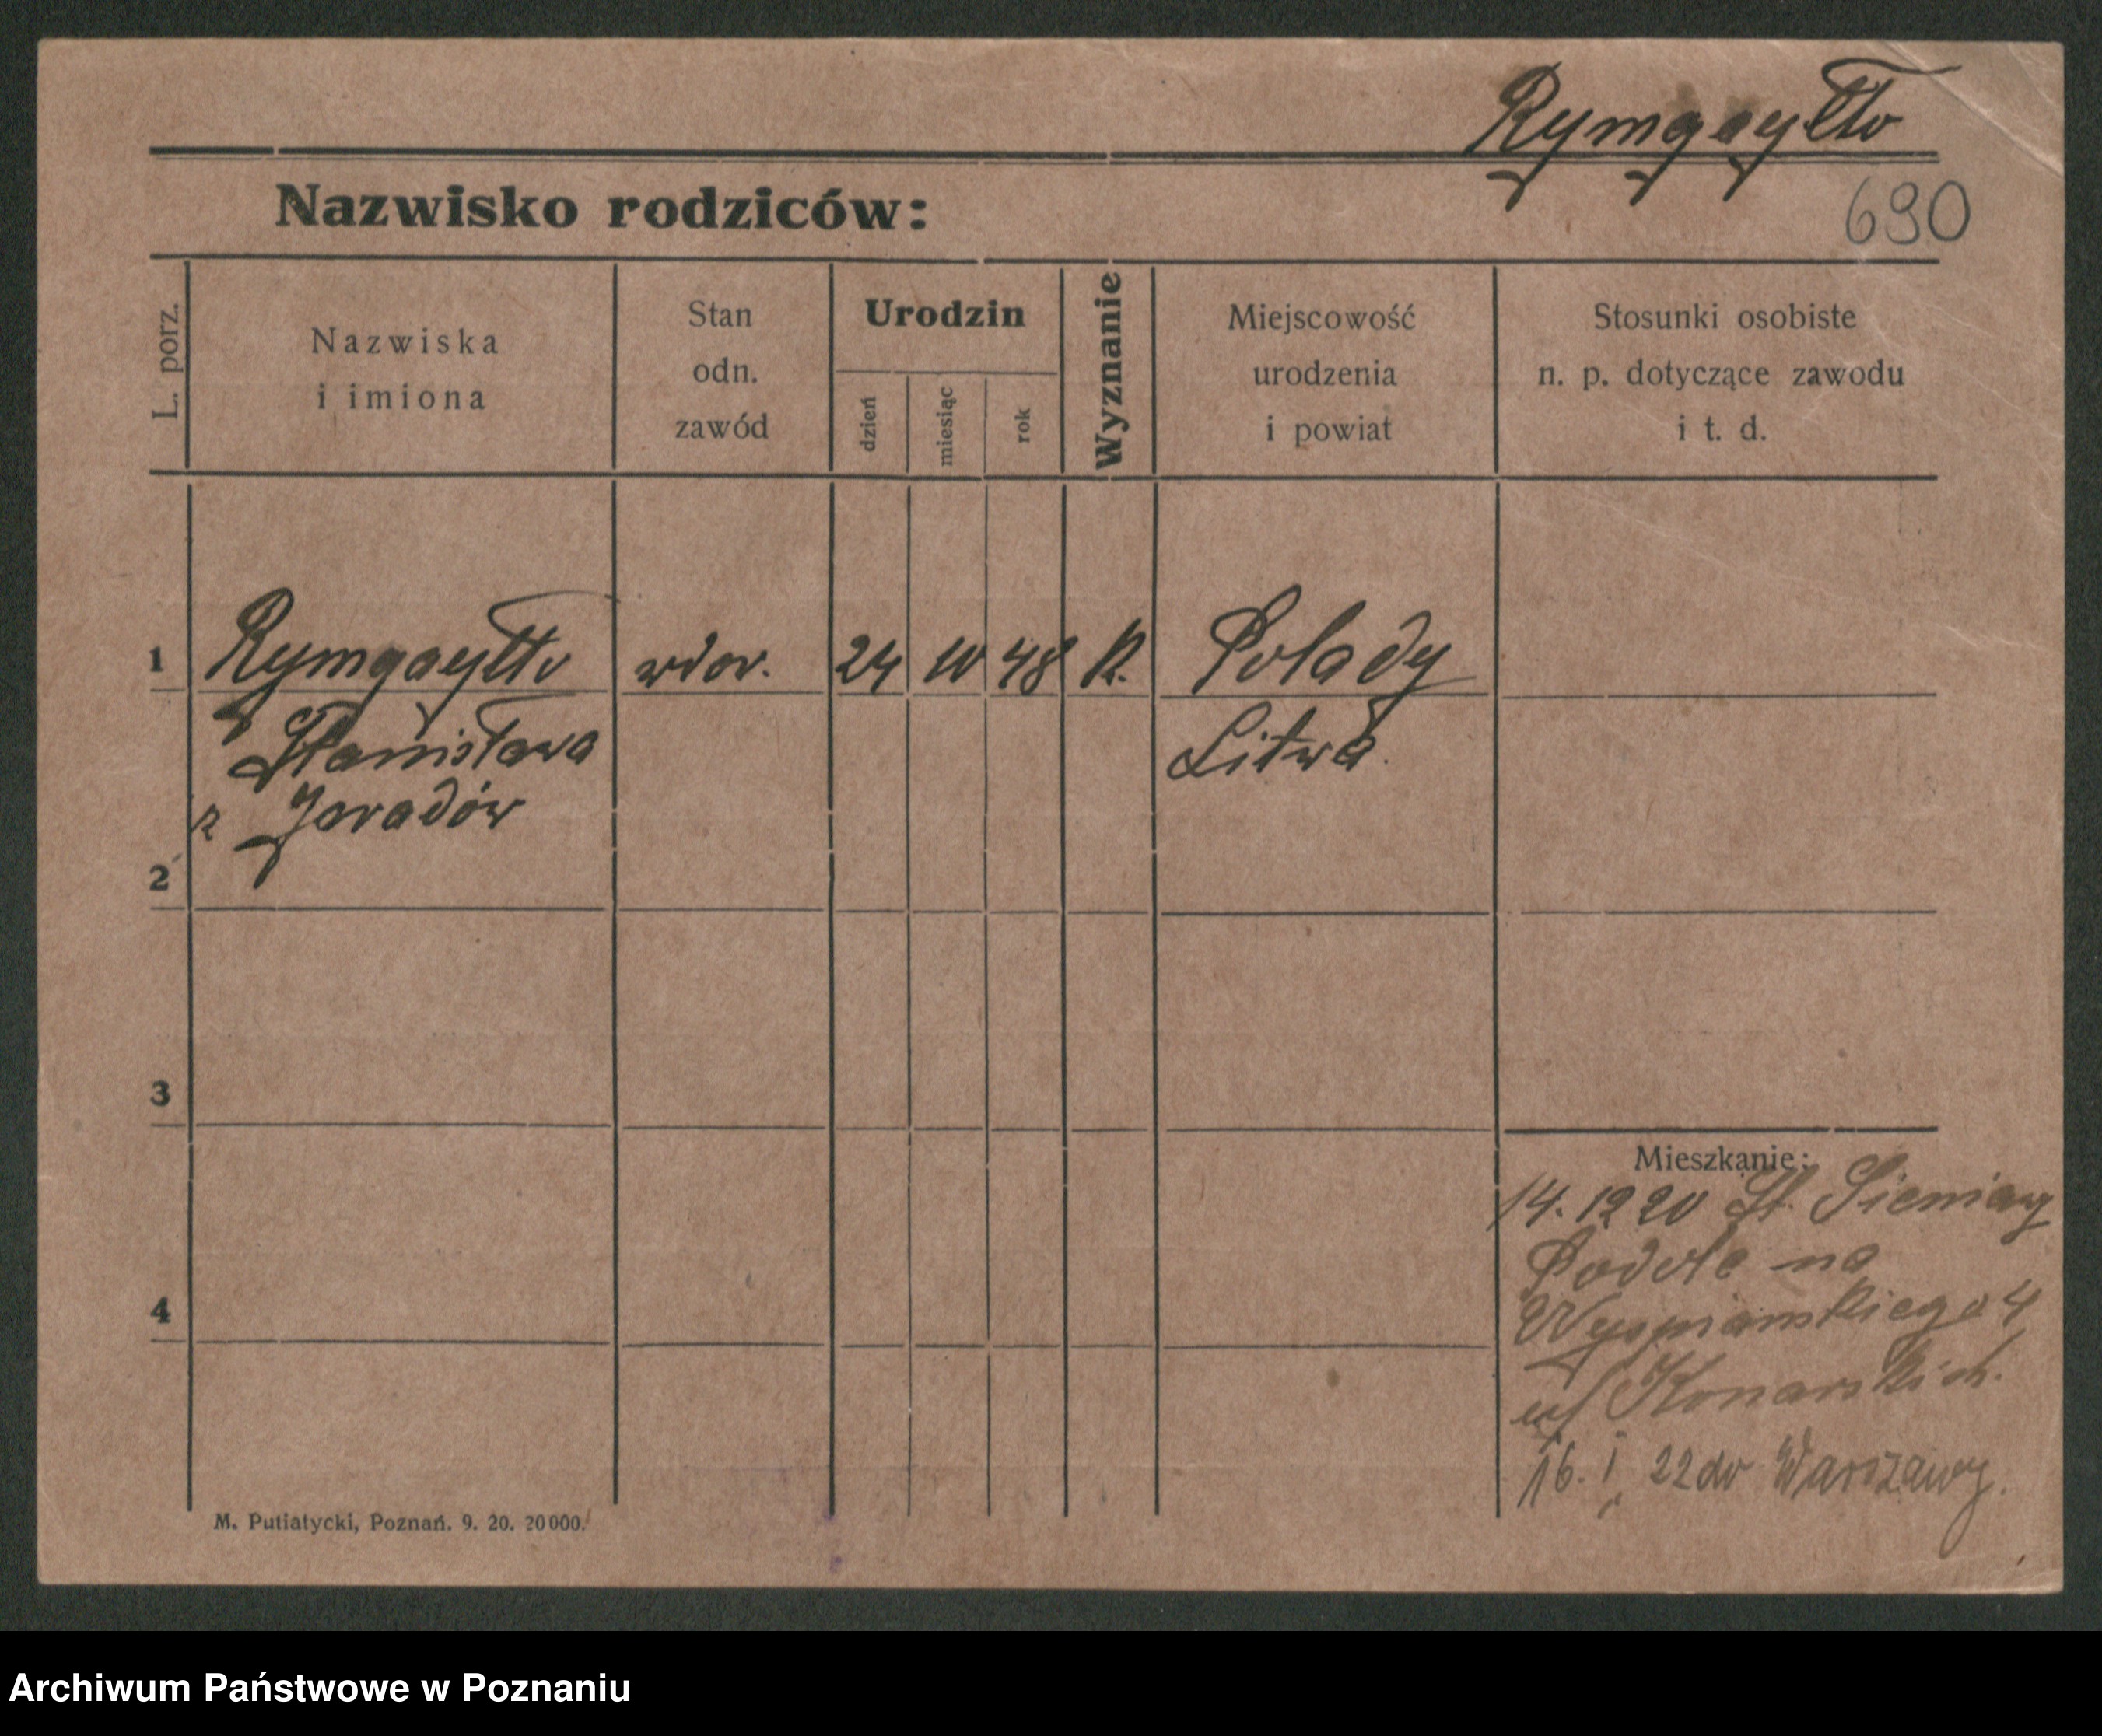 Rymgayłło
Nazwisko rodziców:
690
L. porz.
Nazwiska
i imiona
Stan
odn.
zawód
Urodzin
dzień
miesiąc
rok
Wyznanie
Miejscowość
urodzenia
i powiat
Stosunki osobiste
n. p. dotyczące zawodu
i t. d.
1 Rymgayłło wdow. 24 10 48 K. Polady
Stanisława Litwa.
z Jeradów
2
3
4
Mieszkanie:
14. 12 20 St. Sieniawy
Podole na
Wyspiańskiego 4
Konarskich.
16. I. 22 do Warszawy.
M. Putiatycki, Poznań. 9. 20. 20000.
Archiwum Państwowe w Poznaniu